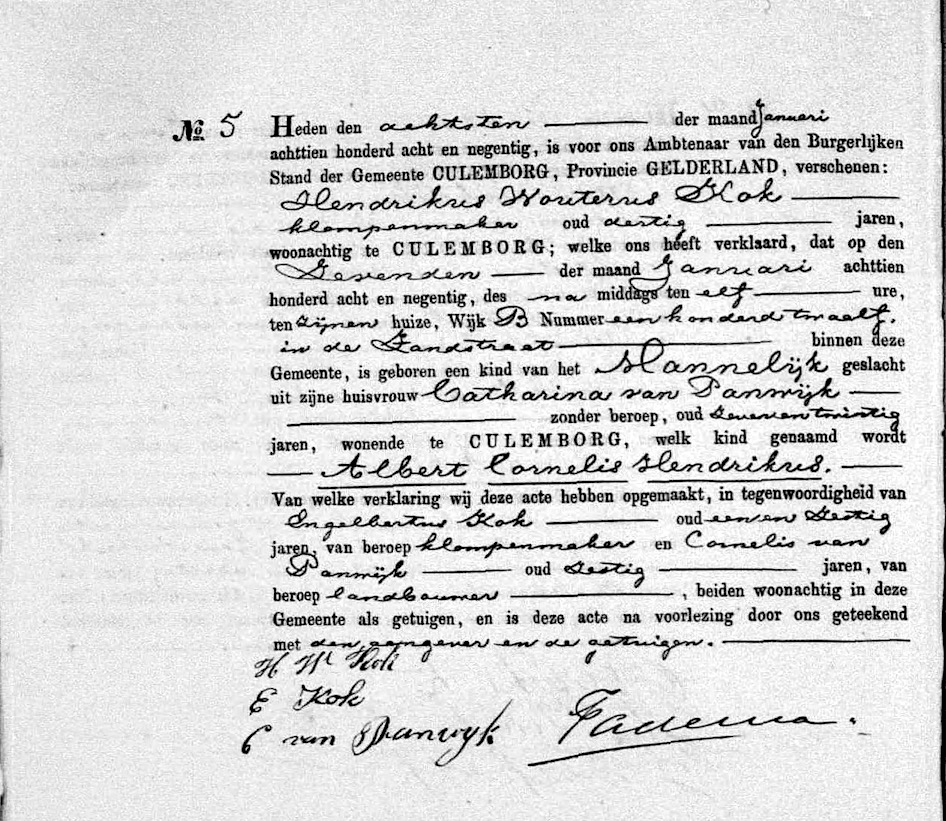 No. 5 Heden den achtsten der maand Januari
achttien honderd acht en negentig, is voor ons Ambtenaar van den Burgerlijken
Stand der Gemeente CULEMBORG, Provincie GELDERLAND, verschenen:
Hendrikus Wouterus Kok
klompenmaker oud dertig jaren,
woonachtig te CULEMBORG; welke ons heeft verklaard, dat op den
Zevenden der maand Januari achttien
honderd acht en negentig, des na middags ten elf ure,
ten zijnen huize, Wijk B Nummer een honderd twaalf.
in de Zandstraat binnen deze
Gemeente, is geboren een kind van het Mannelijk geslacht
uit zijne huisvrouw Catharina van Panwijk
zonder beroep, oud zevenentwintig
jaren, wonende te CULEMBORG, welk kind genaamd wordt
Albert Cornelis Hendrikus.
Van welke verklaring wij deze acte hebben opgemaakt, in tegenwoordigheid van
Engelbertus Kok oud een en Zestig
jaren, van beroep klompenmaker en Cornelis van
Panwijk oud Zestig jaren, van
beroep landbouwer, beiden woonachtig in deze
Gemeente als getuigen, en is deze acte na voorlezing door ons geteekend
met den aangever en de getuigen.
H W Kok
E Kok
C van Panwyk